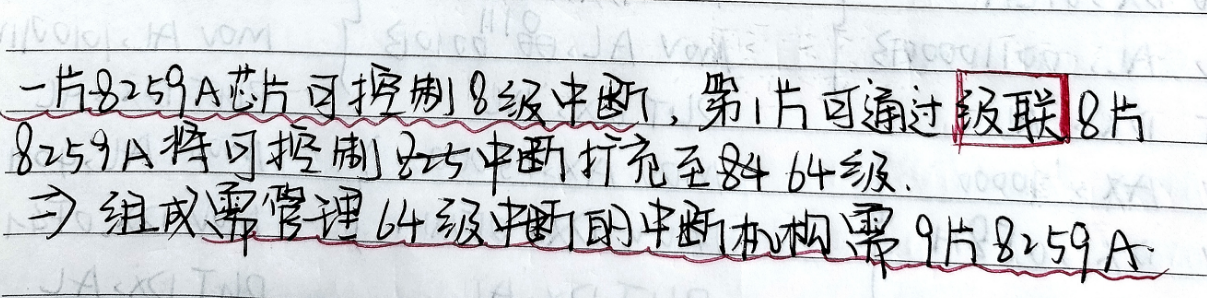 一片8259A芯片可控制8级中断,第1片可通过级联8片
8259A将可控制825中断扩充至84 64级.
⇒ 组成需管理64级中断的中断机构需9片8259A.